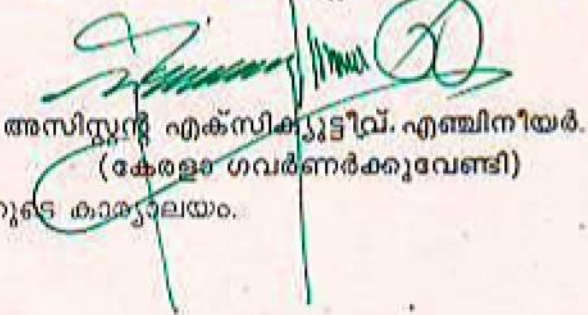 അസിസ്റ്റന്റ് എക്സിക്യൂട്ടീവ്. എഞ്ചിനീയർ.
(കേരളാ ഗവർണർക്കുവേണ്ടി)
റുടെ കാര്യാലയം.